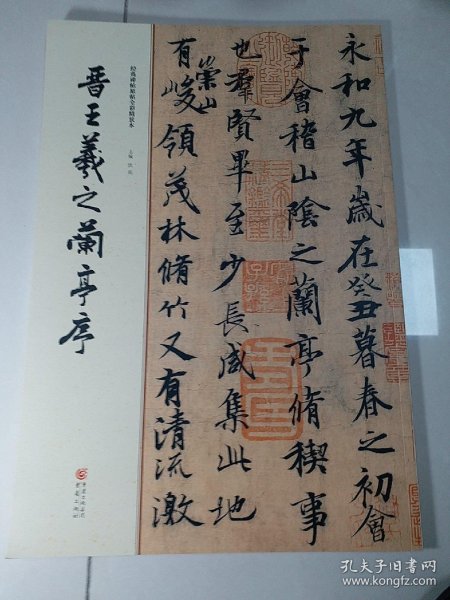 永和九年歲在癸丑暮春之初會
于會稽山陰之蘭亭脩禊事
也羣賢畢至少長咸集此地
有崇山峻領茂林脩竹又有清流激
晋王羲之蘭亭序
主编
重庆出版社
孔夫子旧书网
www.kongfz.com